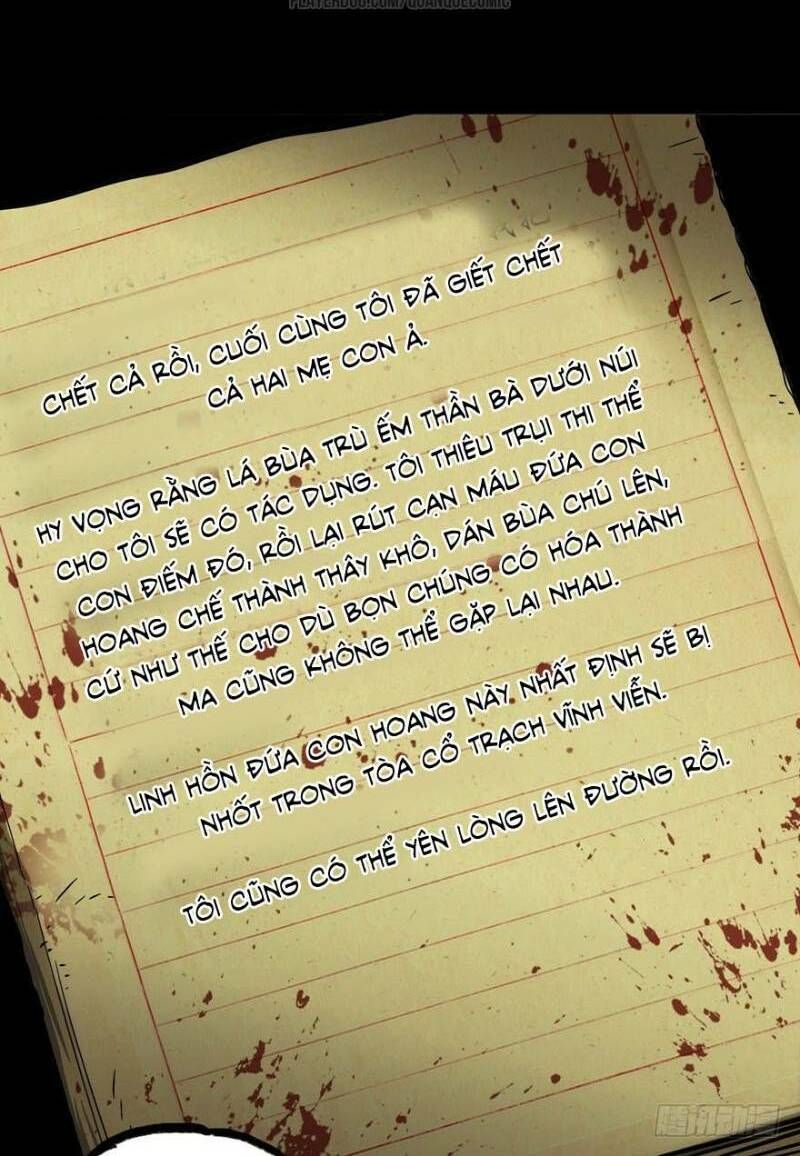 PLAYERDUO.COM/QUANQUECOMIC
CHẾT CẢ RỒI, CUỐI CÙNG TÔI ĐÃ GIẾT CHẾT
CẢ HAI MẸ CON Ả.
HY VỌNG RẰNG LÁ BÙA TRÙ ẾM THẦN BÀ DƯỚI NÚI
CHO TÔI SẼ CÓ TÁC DỤNG. TÔI THIÊU TRỤI THI THỂ
CON ĐIẾM ĐÓ, RỒI LẠI RÚT CẠN MÁU ĐỨA CON
HOANG CHẾ THÀNH THÂY KHÔ, DÁN BÙA CHÚ LÊN,
CỨ NHƯ THẾ CHO DÙ BỌN CHÚNG CÓ HÓA THÀNH
MA CŨNG KHÔNG THỂ GẶP LẠI NHAU.
LINH HỒN ĐỨA CON HOANG NÀY NHẤT ĐỊNH SẼ BỊ
NHỐT TRONG TÒA CỔ TRẠCH VĨNH VIỄN.
TÔI CŨNG CÓ THỂ YÊN LÒNG LÊN ĐƯỜNG RỒI.
腾讯动漫